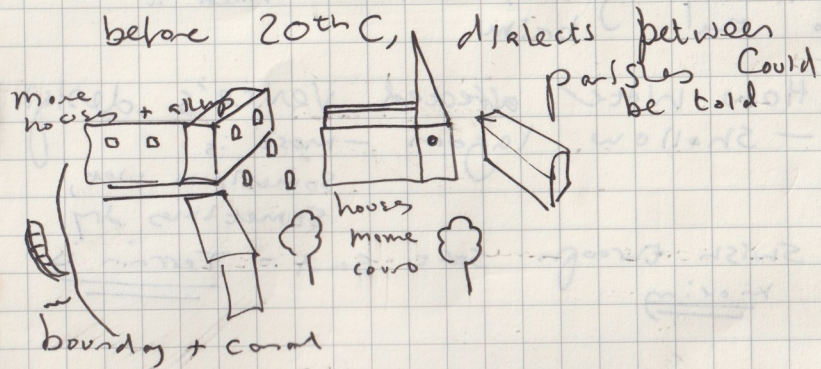 before 20th C, dialects between
parishes could
be told
more
houses +
houses
more
boundary + canal